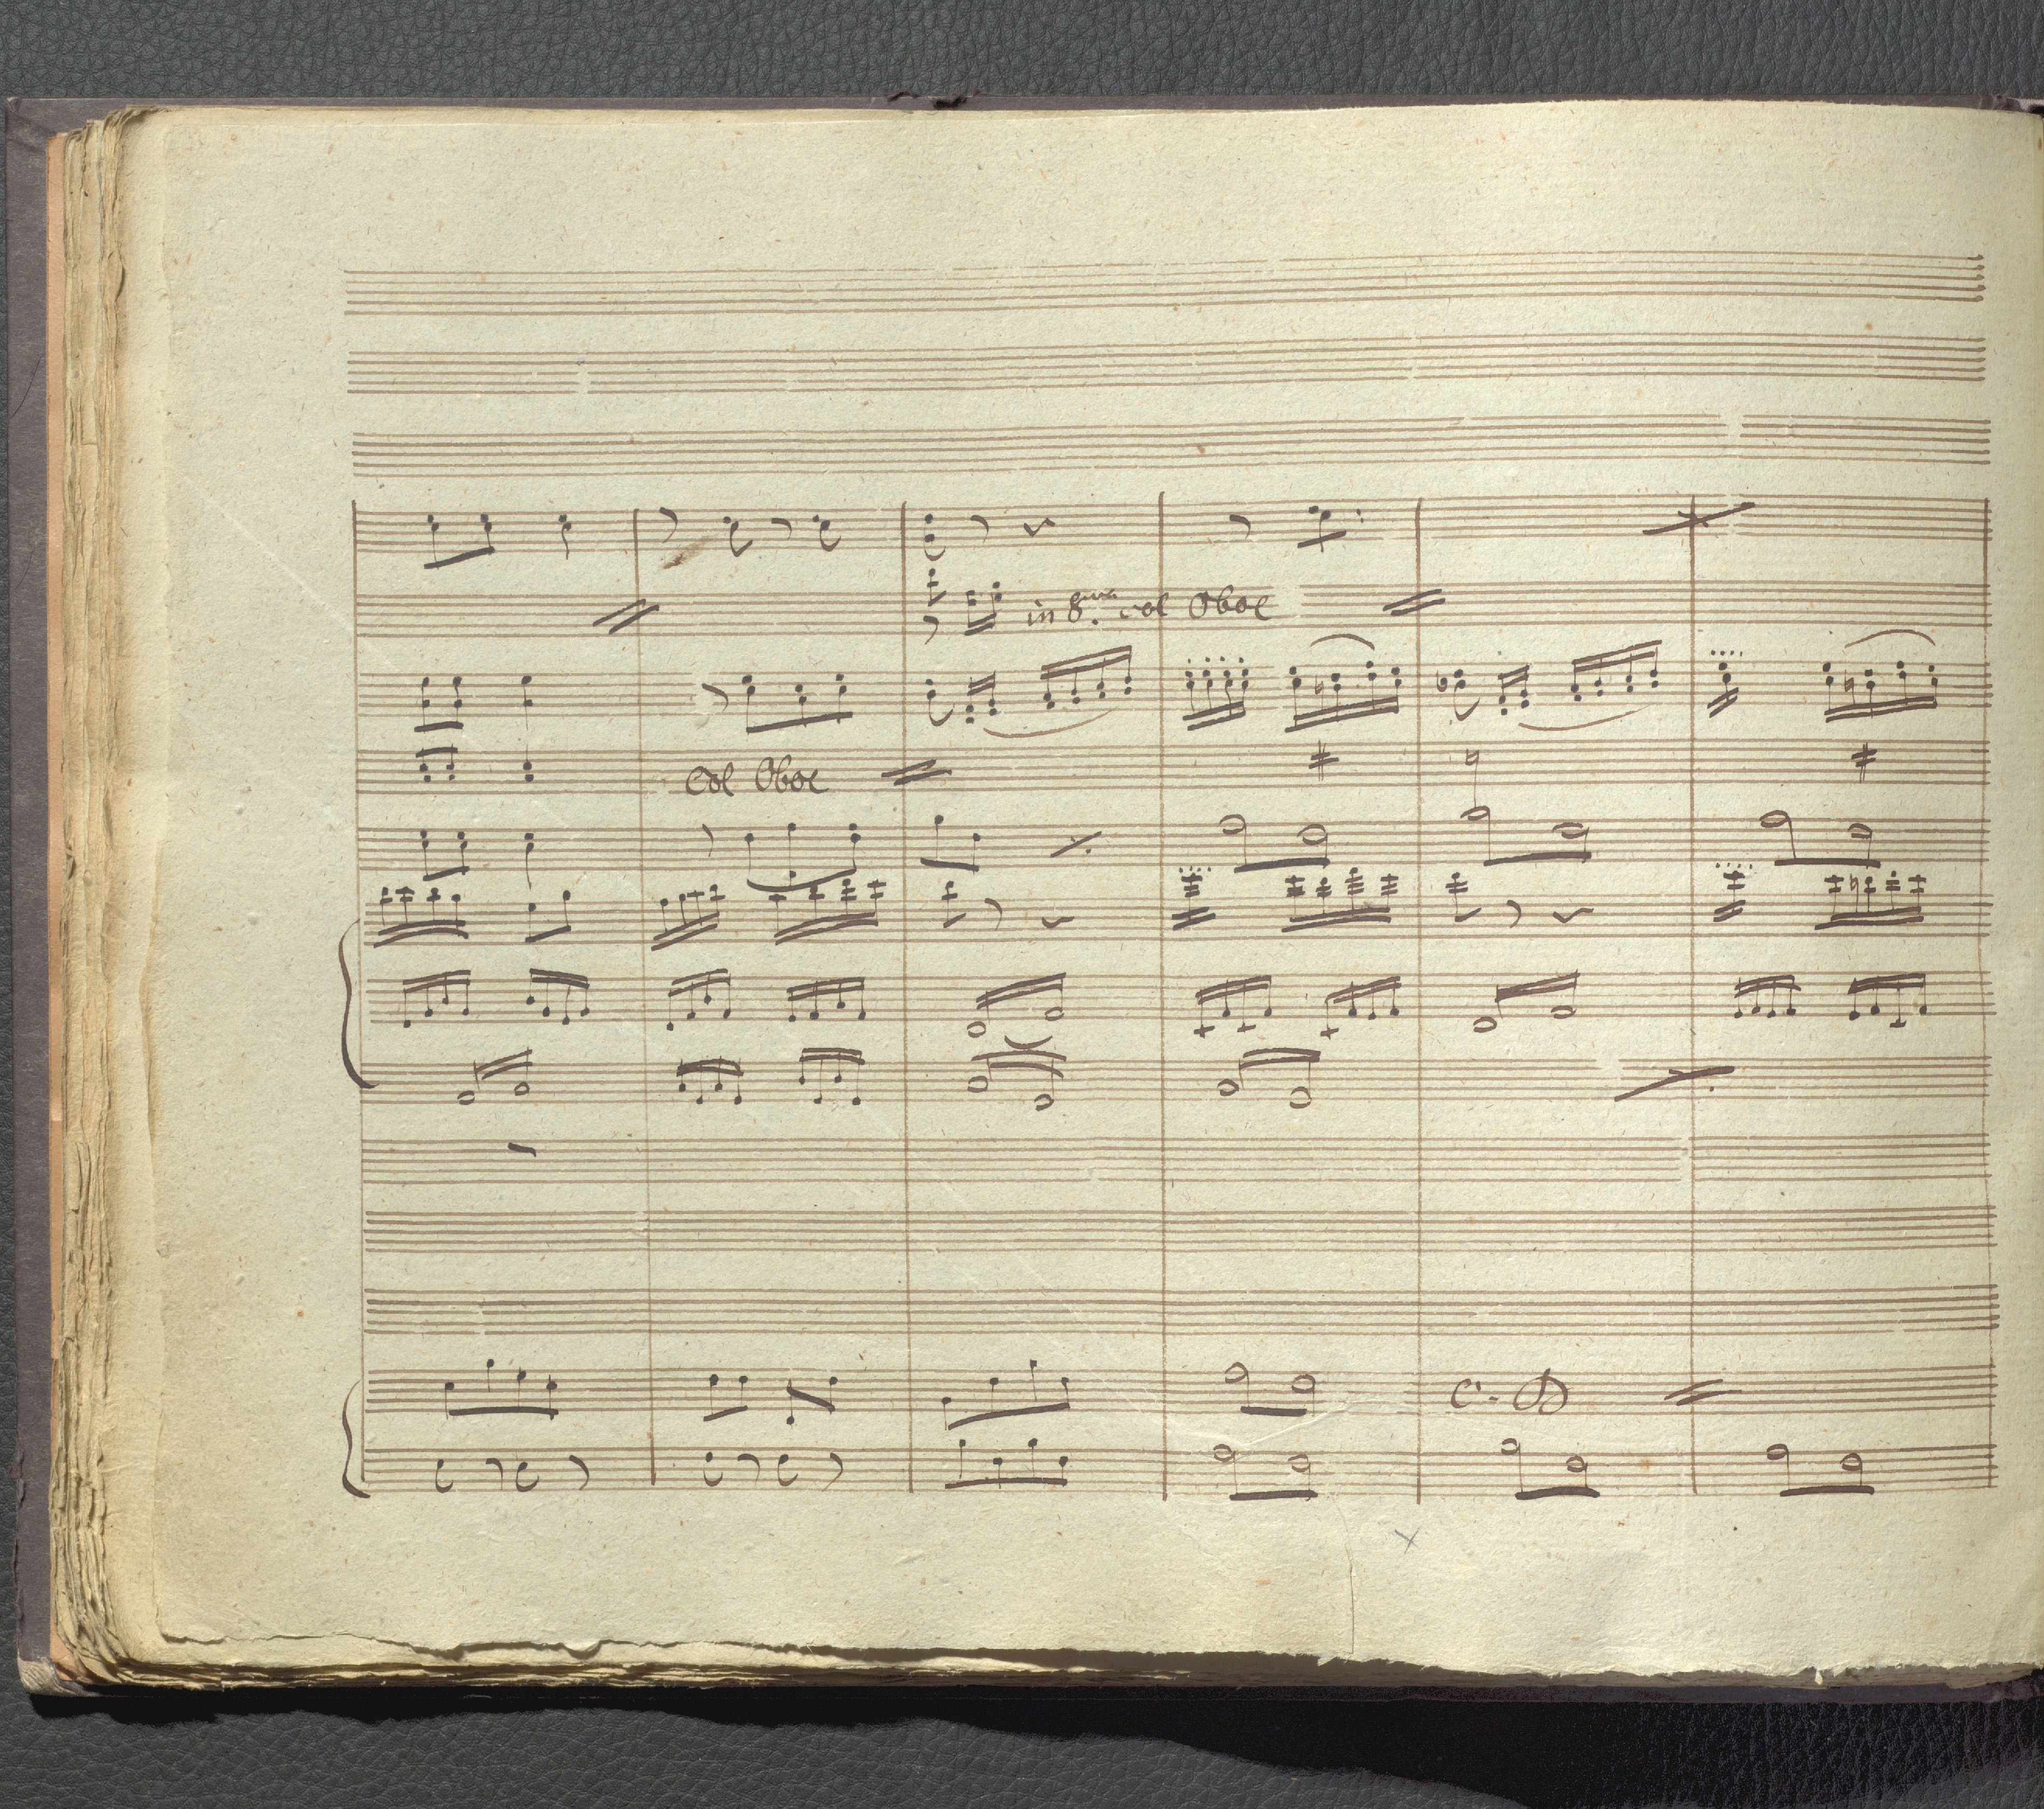 in 8.va col Oboe
col Oboe
C. B